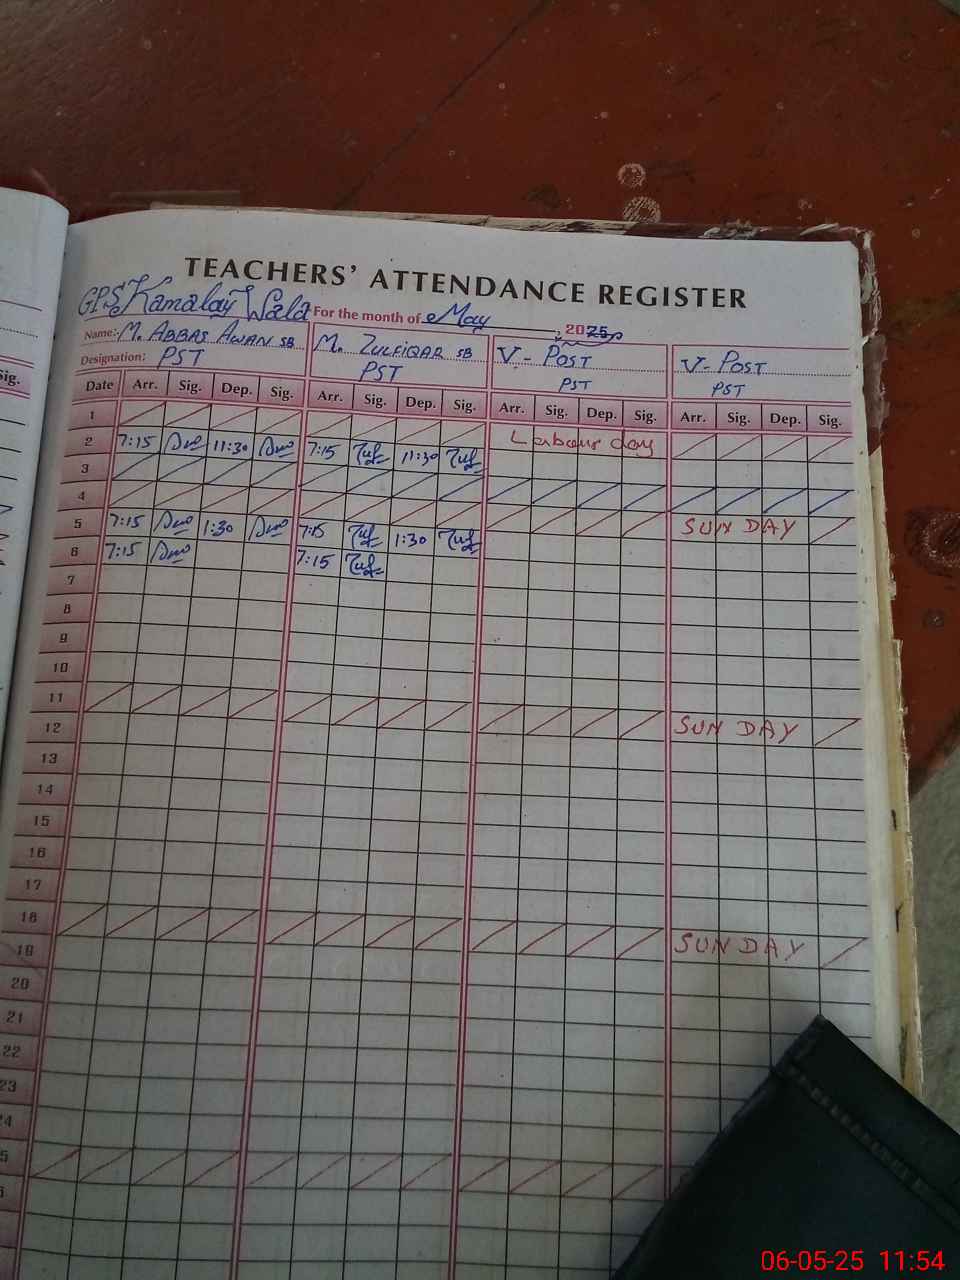 TEACHERS' ATTENDANCE REGISTER
GPS Kamalay Wala For the month of May, 2025
Name:- M. ABBAS AWAN SB M. ZULFIQAR SB V- POST V- POST
Designation: PST PST PST PST
sig. Date Arr. Sig. Dep. Sig. Arr. Sig. Dep. Sig. Arr. Sig. Dep. Sig. Arr. Sig. Dep. Sig.
1 Labour day
2 7:15 11:30 7:15 11:30
3
4 SUNDAY
5 7:15 1:30 7:15 1:30
6 7:15 7:15
7
8
9
10
11 SUNDAY
12
13
14
15
16
17
18 SUNDAY
19
20
21
22
23
24
5
06-05-25 11:54